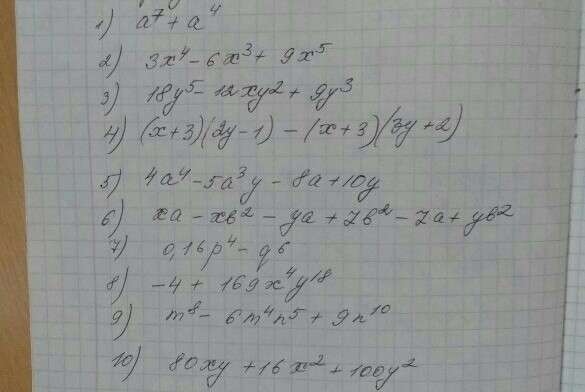 1) a⁷ + a⁴
2) 3x⁴ - 6x³ + 9x⁵
3) 18y⁵ - 12xy² + 9y³
4) (x+3)(2y-1) - (x+3)(3y+2)
5) 4a⁴ - 5a³y - 8a + 10y
6) xa - xb² - ya + zb² - za + yb²
7) 0,16p⁴ - q⁶
8) -4 + 169x⁴y¹⁸
9) m⁸ - 6m⁴n⁵ + 9n¹⁰
10) 80xy + 16x² + 100y²